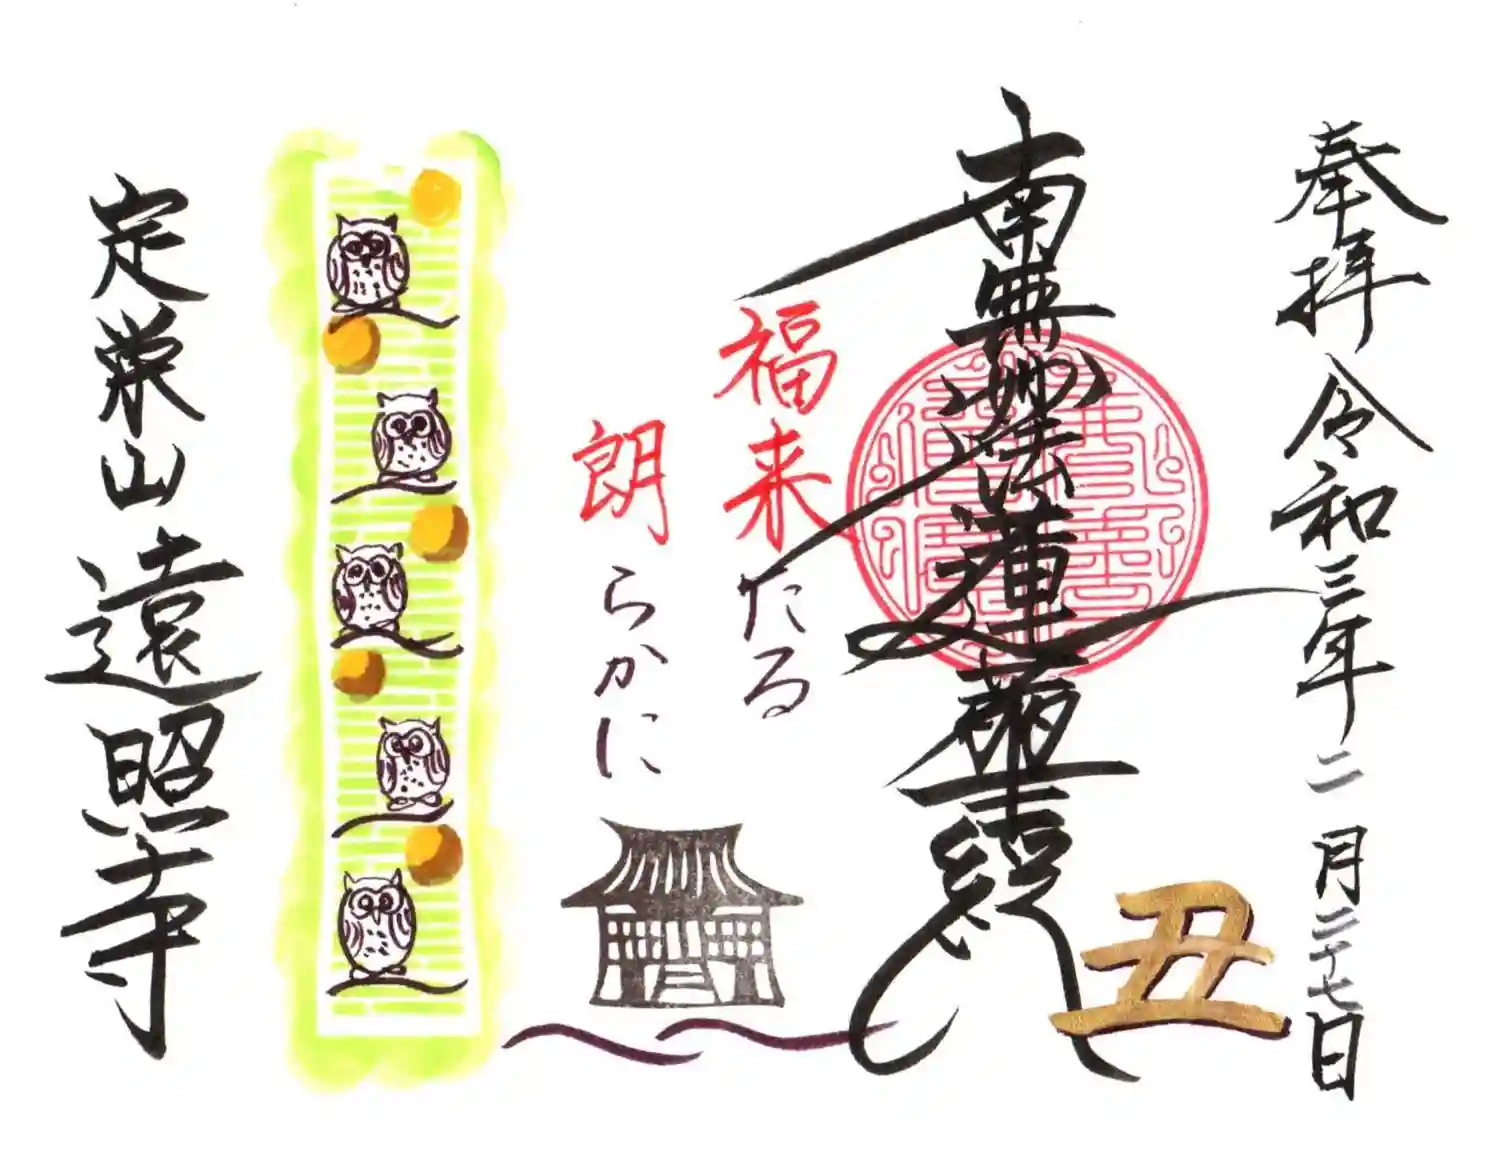 奉拝 令和三年二月二十七日
丑
南無妙法蓮華経
福来たる
朗らかに
定栄山 遠照寺